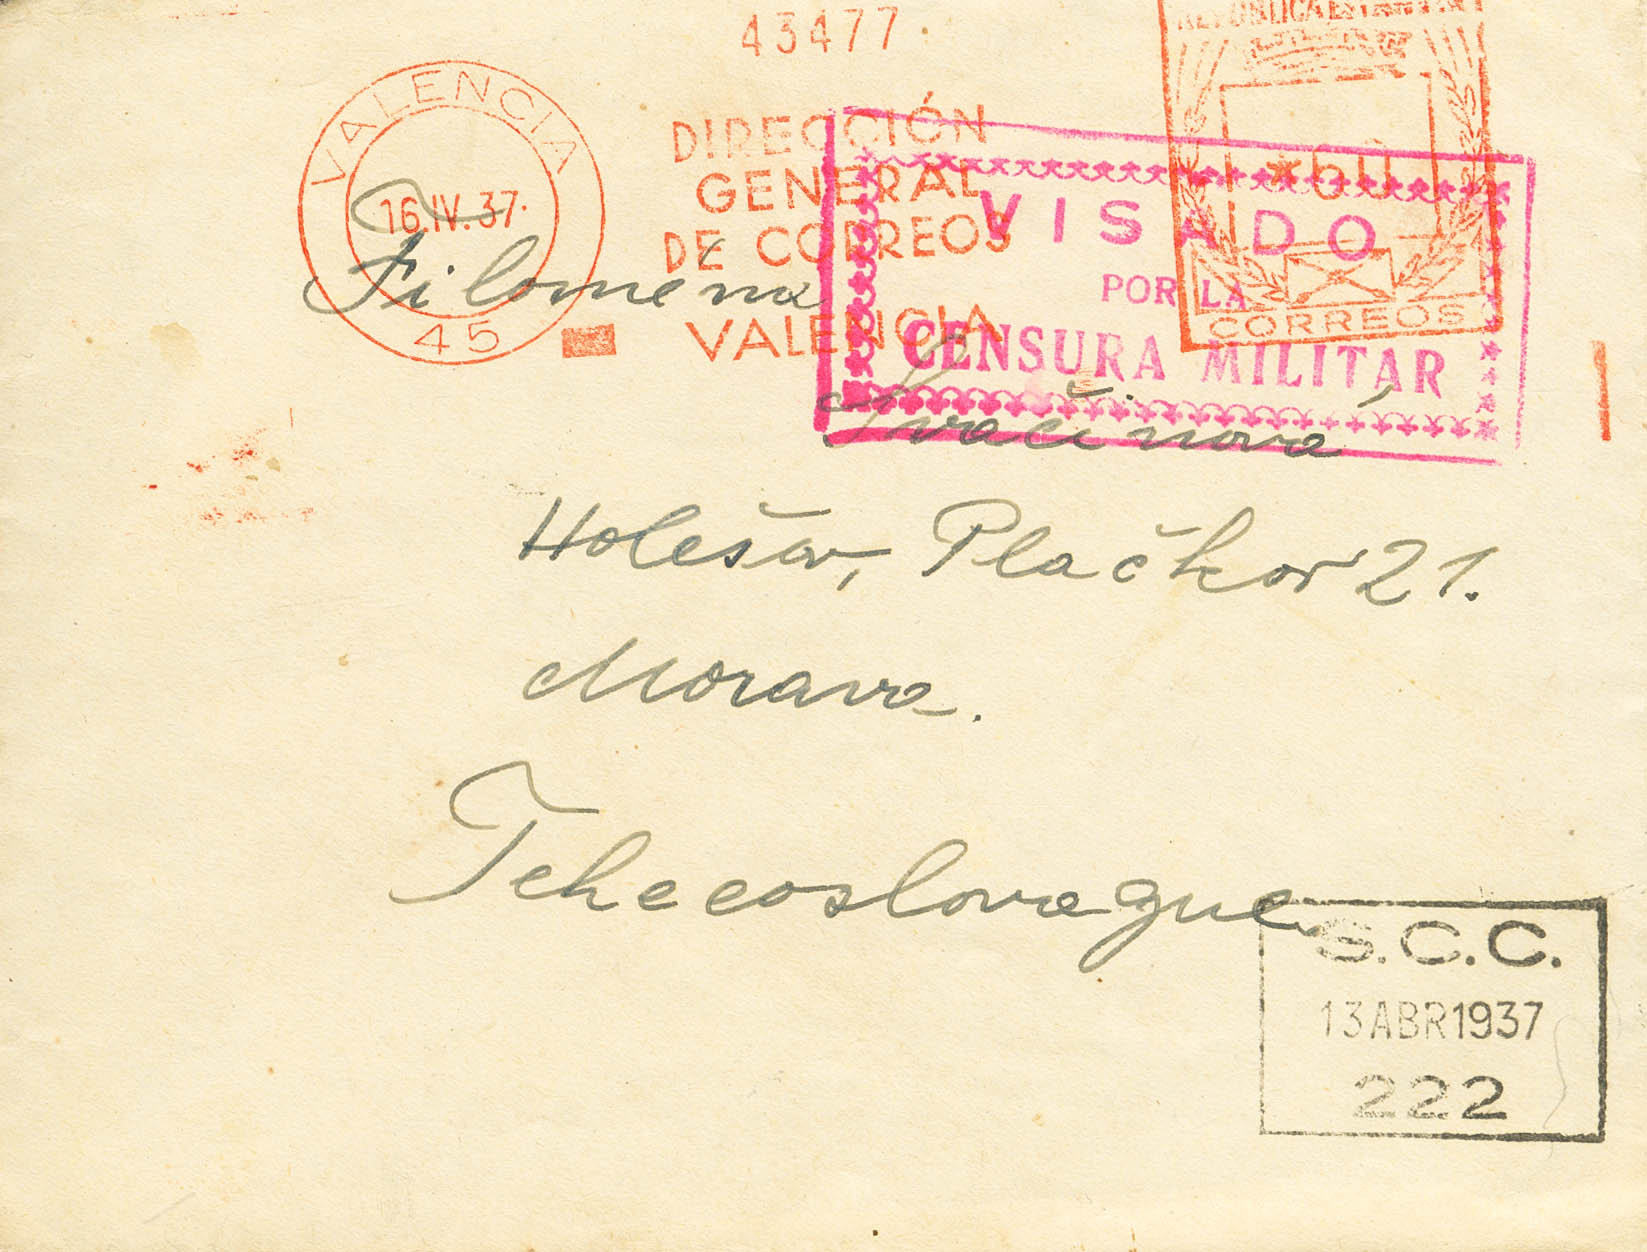 43477
REPÚBLICA ESPAÑOLA
VALENCIA
16.IV.37.
45
DIRECCIÓN
GENERAL
DE CORREOS
VALENCIA
*60
CORREOS
VISADO
POR LA
CENSURA MILITAR
Filoména
Svačinova
Holešov, Plačkov 21.
Morava.
Tchecoslovaque
S.C.C.
13 ABR 1937
222